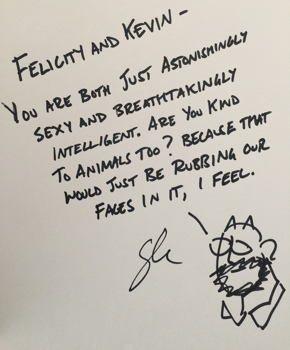 FELICITY AND KEVIN -
YOU ARE BOTH JUST ASTONISHINGLY
SEXY AND BREATHTAKINGLY
INTELLIGENT. ARE YOU KIND
TO ANIMALS TOO? BECAUSE THAT
WOULD JUST BE RUBBING OUR
FACES IN IT, I FEEL.